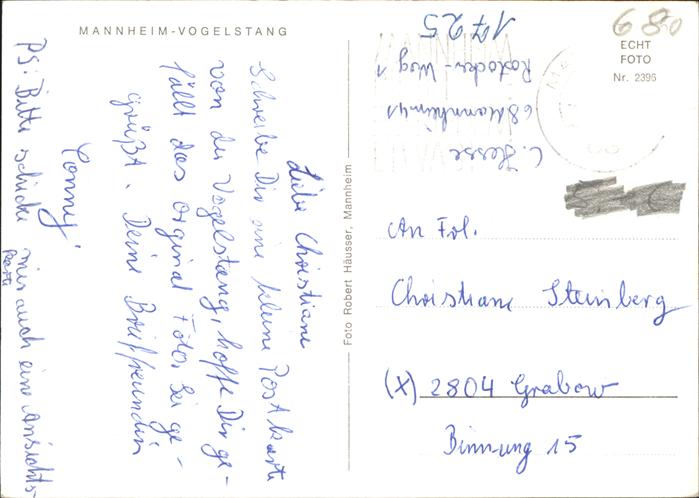 MANNHEIM-VOGELSTANG
Liebe Christiane
Schreibe Dir eine kleine Postkarte
von der Vogelstang, hoffe Dir ge-
fällt das orginal Foto. Sei ge-
grüßt. Deine Brieffreundin
Conny
PS: Bitte schicke mir auch eine Ansichts-
karte
Foto Robert Häusser, Mannheim
C. Hesse
68 Mannheim 41
Rostocker-Weg 1
1725
680
ECHT
FOTO
Nr. 2396
An Frl.
Christiane Steinberg
(X) 2804 Grabow
Binnung 15